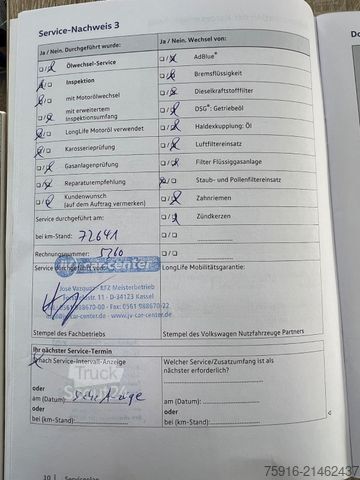 Service-Nachweis 3
Ja / Nein. Durchgeführt wurde:
Ölwechsel-Service
Inspektion
mit Motorölwechsel
mit erweitertem
Inspektionsumfang
LongLife Motoröl verwendet
Karosserieprüfung
Gasanlagenprüfung
Reparaturempfehlung
Kundenwunsch
(auf dem Auftrag vermerken)
Service durchgeführt am:
bei km-Stand: 72641
Rechnungsnummer: 5260
Service durchgeführt von:
jv-car-center
José Vazquez KFZ Meisterbetrieb
11 - D-34123 Kassel
0561 988670-00 - Fax: 0561 988670-22
@jv-car-center.de - www.jv-car-center.de
Stempel des Fachbetriebs
Ja / Nein. Wechsel von:
AdBlue®
Bremsflüssigkeit
Dieselkraftstofffilter
DSG®: Getriebeöl
Haldexkupplung: Öl
Luftfiltereinsatz
Filter Flüssiggasanlage
Staub- und Pollenfiltereinsatz
Zahnriemen
Zündkerzen
LongLife Mobilitätsgarantie:
Stempel des Volkswagen Nutzfahrzeuge Partners
Ihr nächster Service-Termin
nach Service-Intervall-Anzeige
oder
am (Datum): siehe Anzeige
oder
bei (km-Stand):
Welcher Service/Zusatzumfang ist als
nächster erforderlich?
am (Datum):
oder
bei (km-Stand):
Truck
Scout24
10 | Serviceplan
Do
75916-21462437